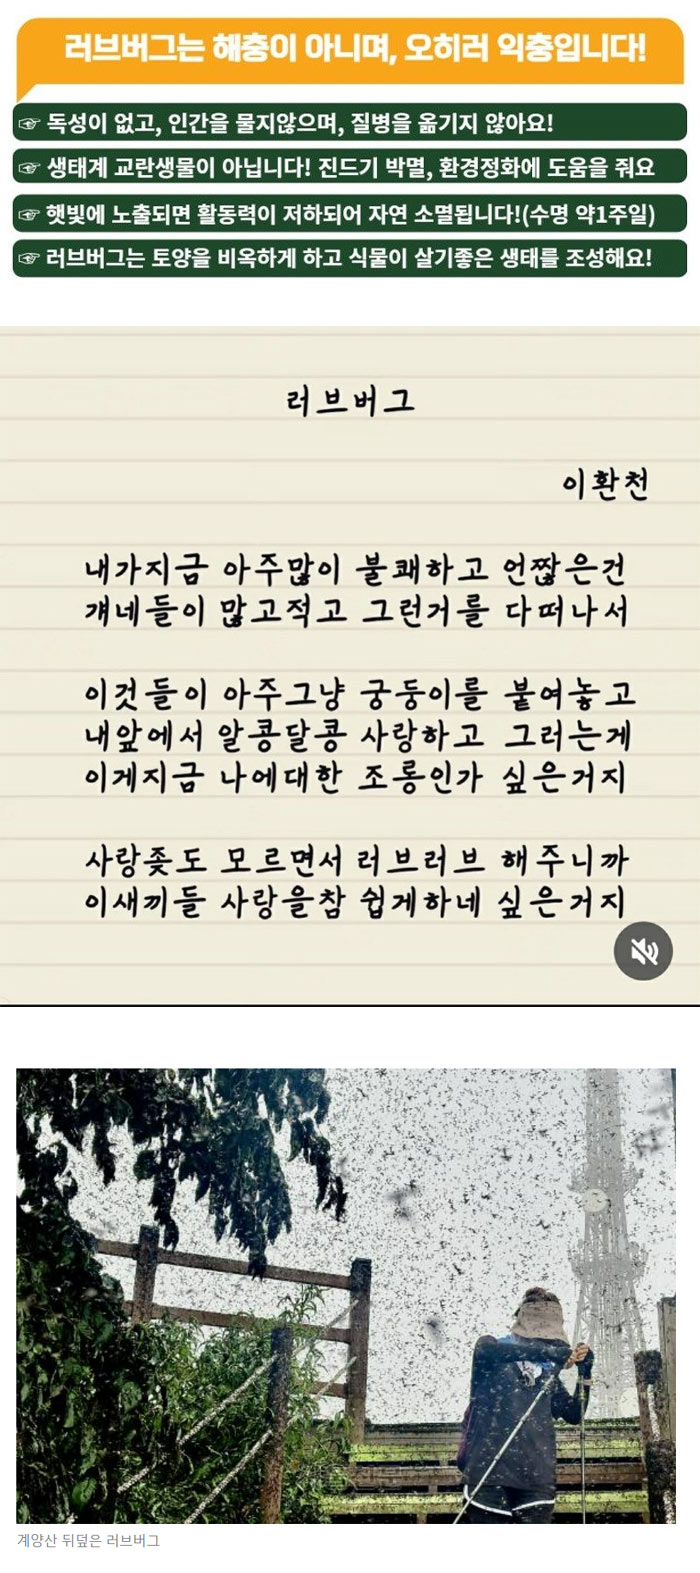 러브버그는 해충이 아니며, 오히려 익충입니다!
☞ 독성이 없고, 인간을 물지않으며, 질병을 옮기지 않아요!
☞ 생태계 교란생물이 아닙니다! 진드기 박멸, 환경정화에 도움을 줘요
☞ 햇빛에 노출되면 활동력이 저하되어 자연 소멸됩니다!(수명 약1주일)
☞ 러브버그는 토양을 비옥하게 하고 식물이 살기좋은 생태를 조성해요!
러브버그
이환천
내가지금 아주많이 불쾌하고 언짢은건
걔네들이 많고적고 그런거를 다떠나서
이것들이 아주그냥 궁둥이를 붙여놓고
내앞에서 알콩달콩 사랑하고 그러는게
이게지금 나에대한 조롱인가 싶은거지
사랑좆도 모르면서 러브러브 해주니까
이새끼들 사랑을참 쉽게하네 싶은거지
계양산 뒤덮은 러브버그